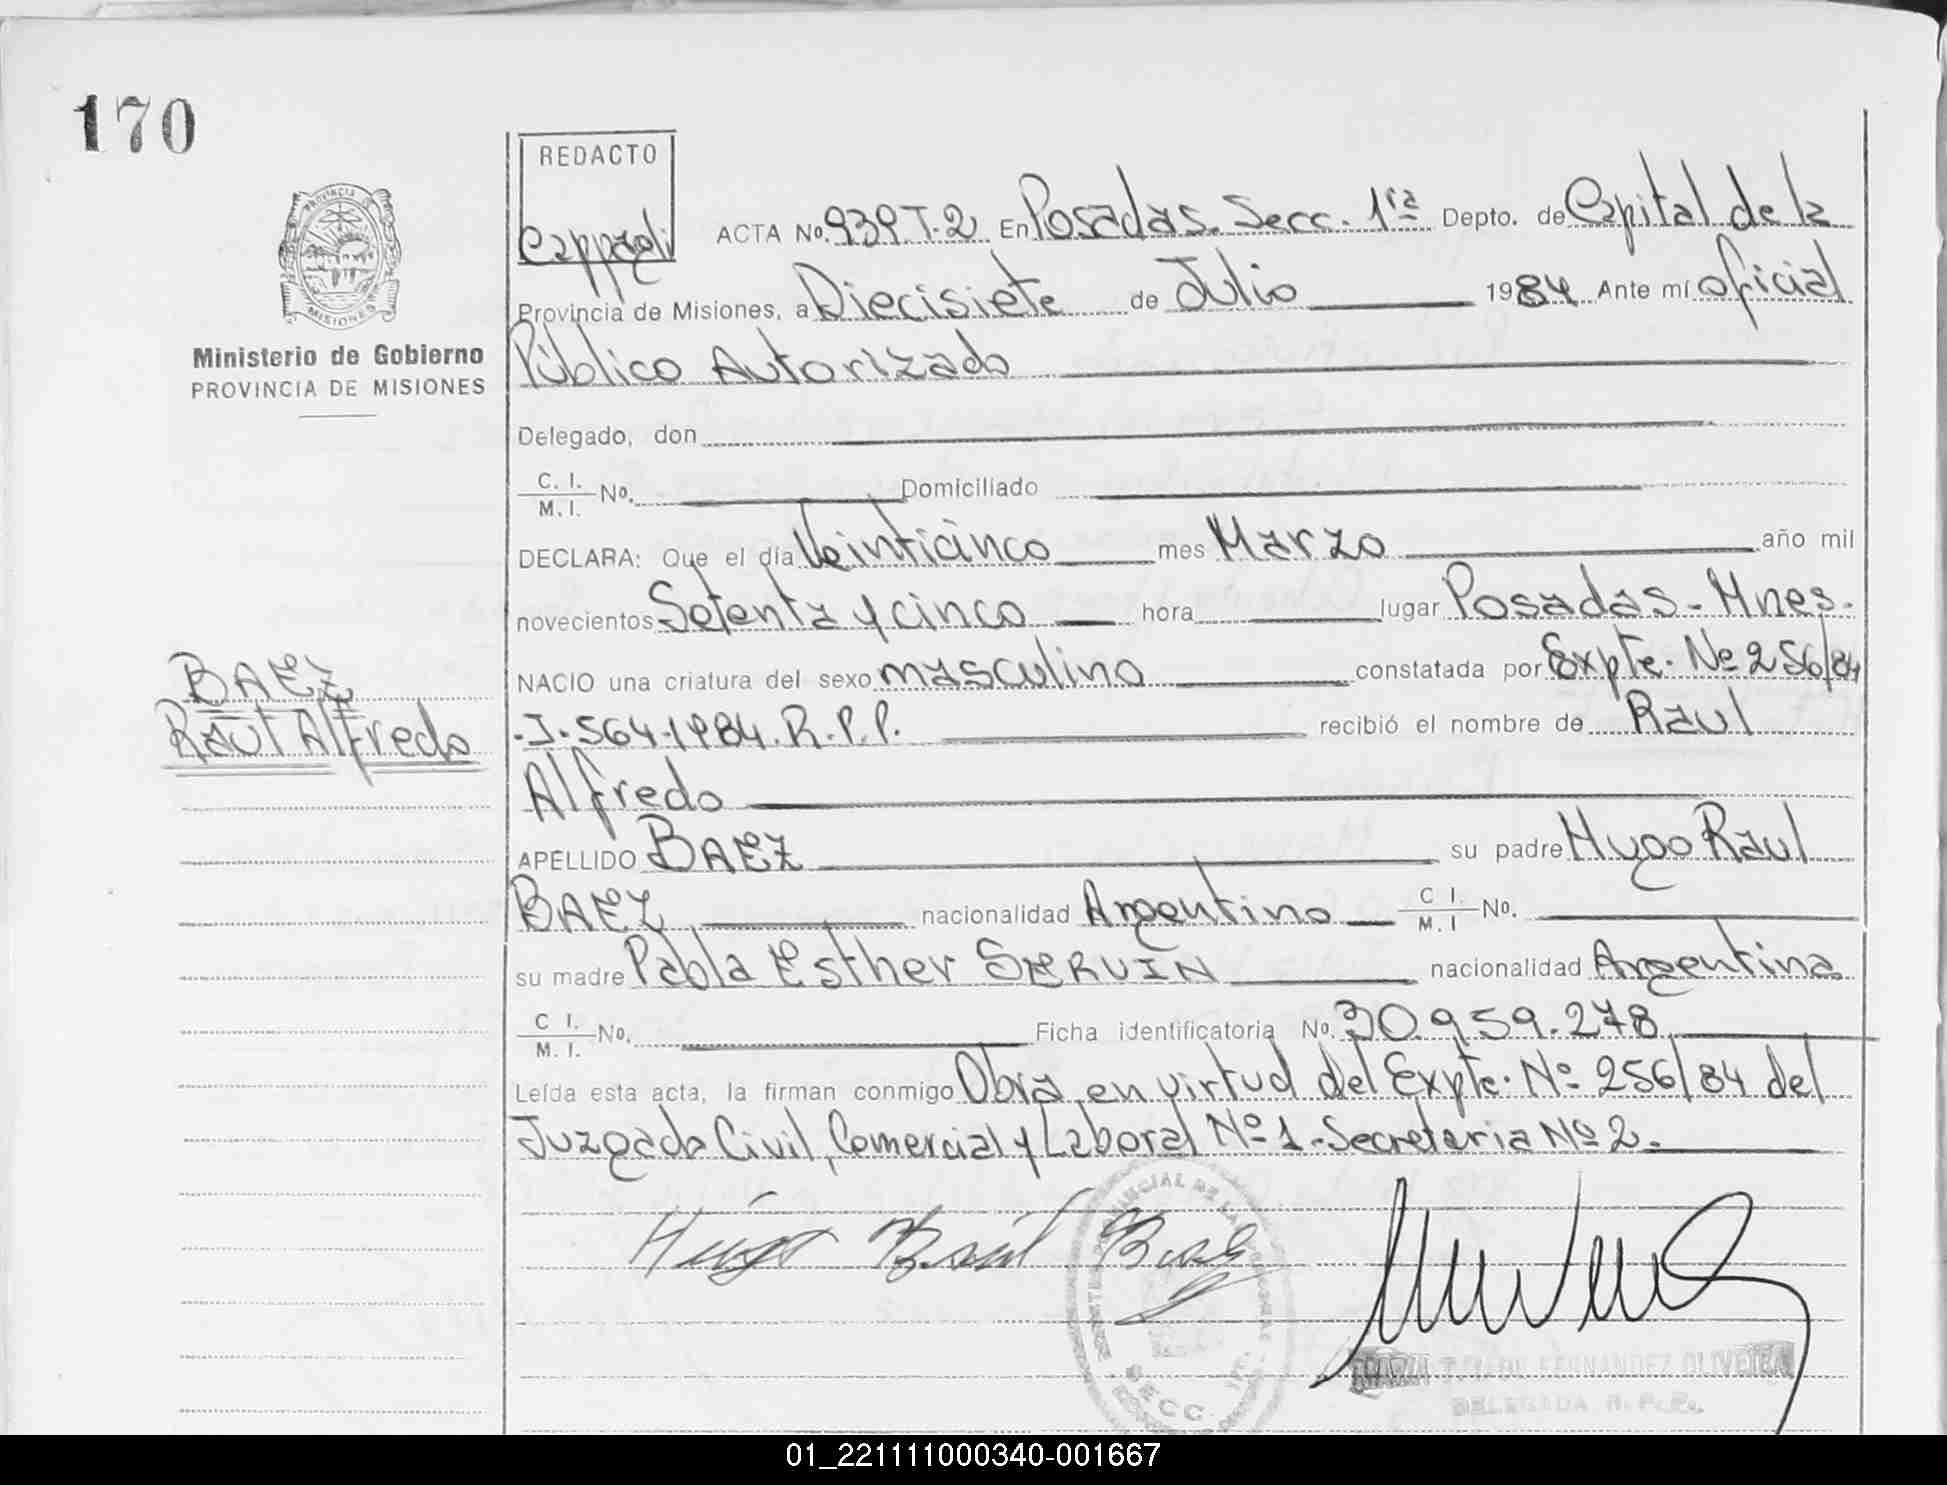 170
PROVINCIA
MISIONES
Ministerio de Gobierno
PROVINCIA DE MISIONES
BAEZ
Raul Alfredo
REDACTO
ACTA Nº. 939 T.2 En Posadas. Secc. 1ra Depto. de Capital de la
Provincia de Misiones, a Diecisiete de Julio 1984 Ante mí oficial
Público Autorizado
Delegado, don
C. I. / M. I. Nº. Domiciliado
DECLARA: Que el día Veinticinco mes Marzo año mil
novecientos Setenta y cinco hora lugar Posadas - Mnes.
NACIO una criatura del sexo masculino constatada por Expte. Nº 256/84
.J.564.1984.R.P.P. recibió el nombre de Raul
Alfredo
APELLIDO BAEZ su padre Hugo Raul
BAEZ nacionalidad Argentino C I. / M. I Nº.
su madre Pabla Esther SERVIN nacionalidad Argentina
C I. / M. I. Nº. Ficha identificatoria Nº. 30.959.278
Leída esta acta, la firman conmigo Obra en virtud del Expte. Nº 256/84 del
Juzgado Civil, Comercial y Laboral Nº 1 - Secretaria Nº 2.
Hugo Raúl Baez
SECC.
FERNANDEZ OLIVEIRA
DELEGADA R. P. P.
01_221111000340-001667